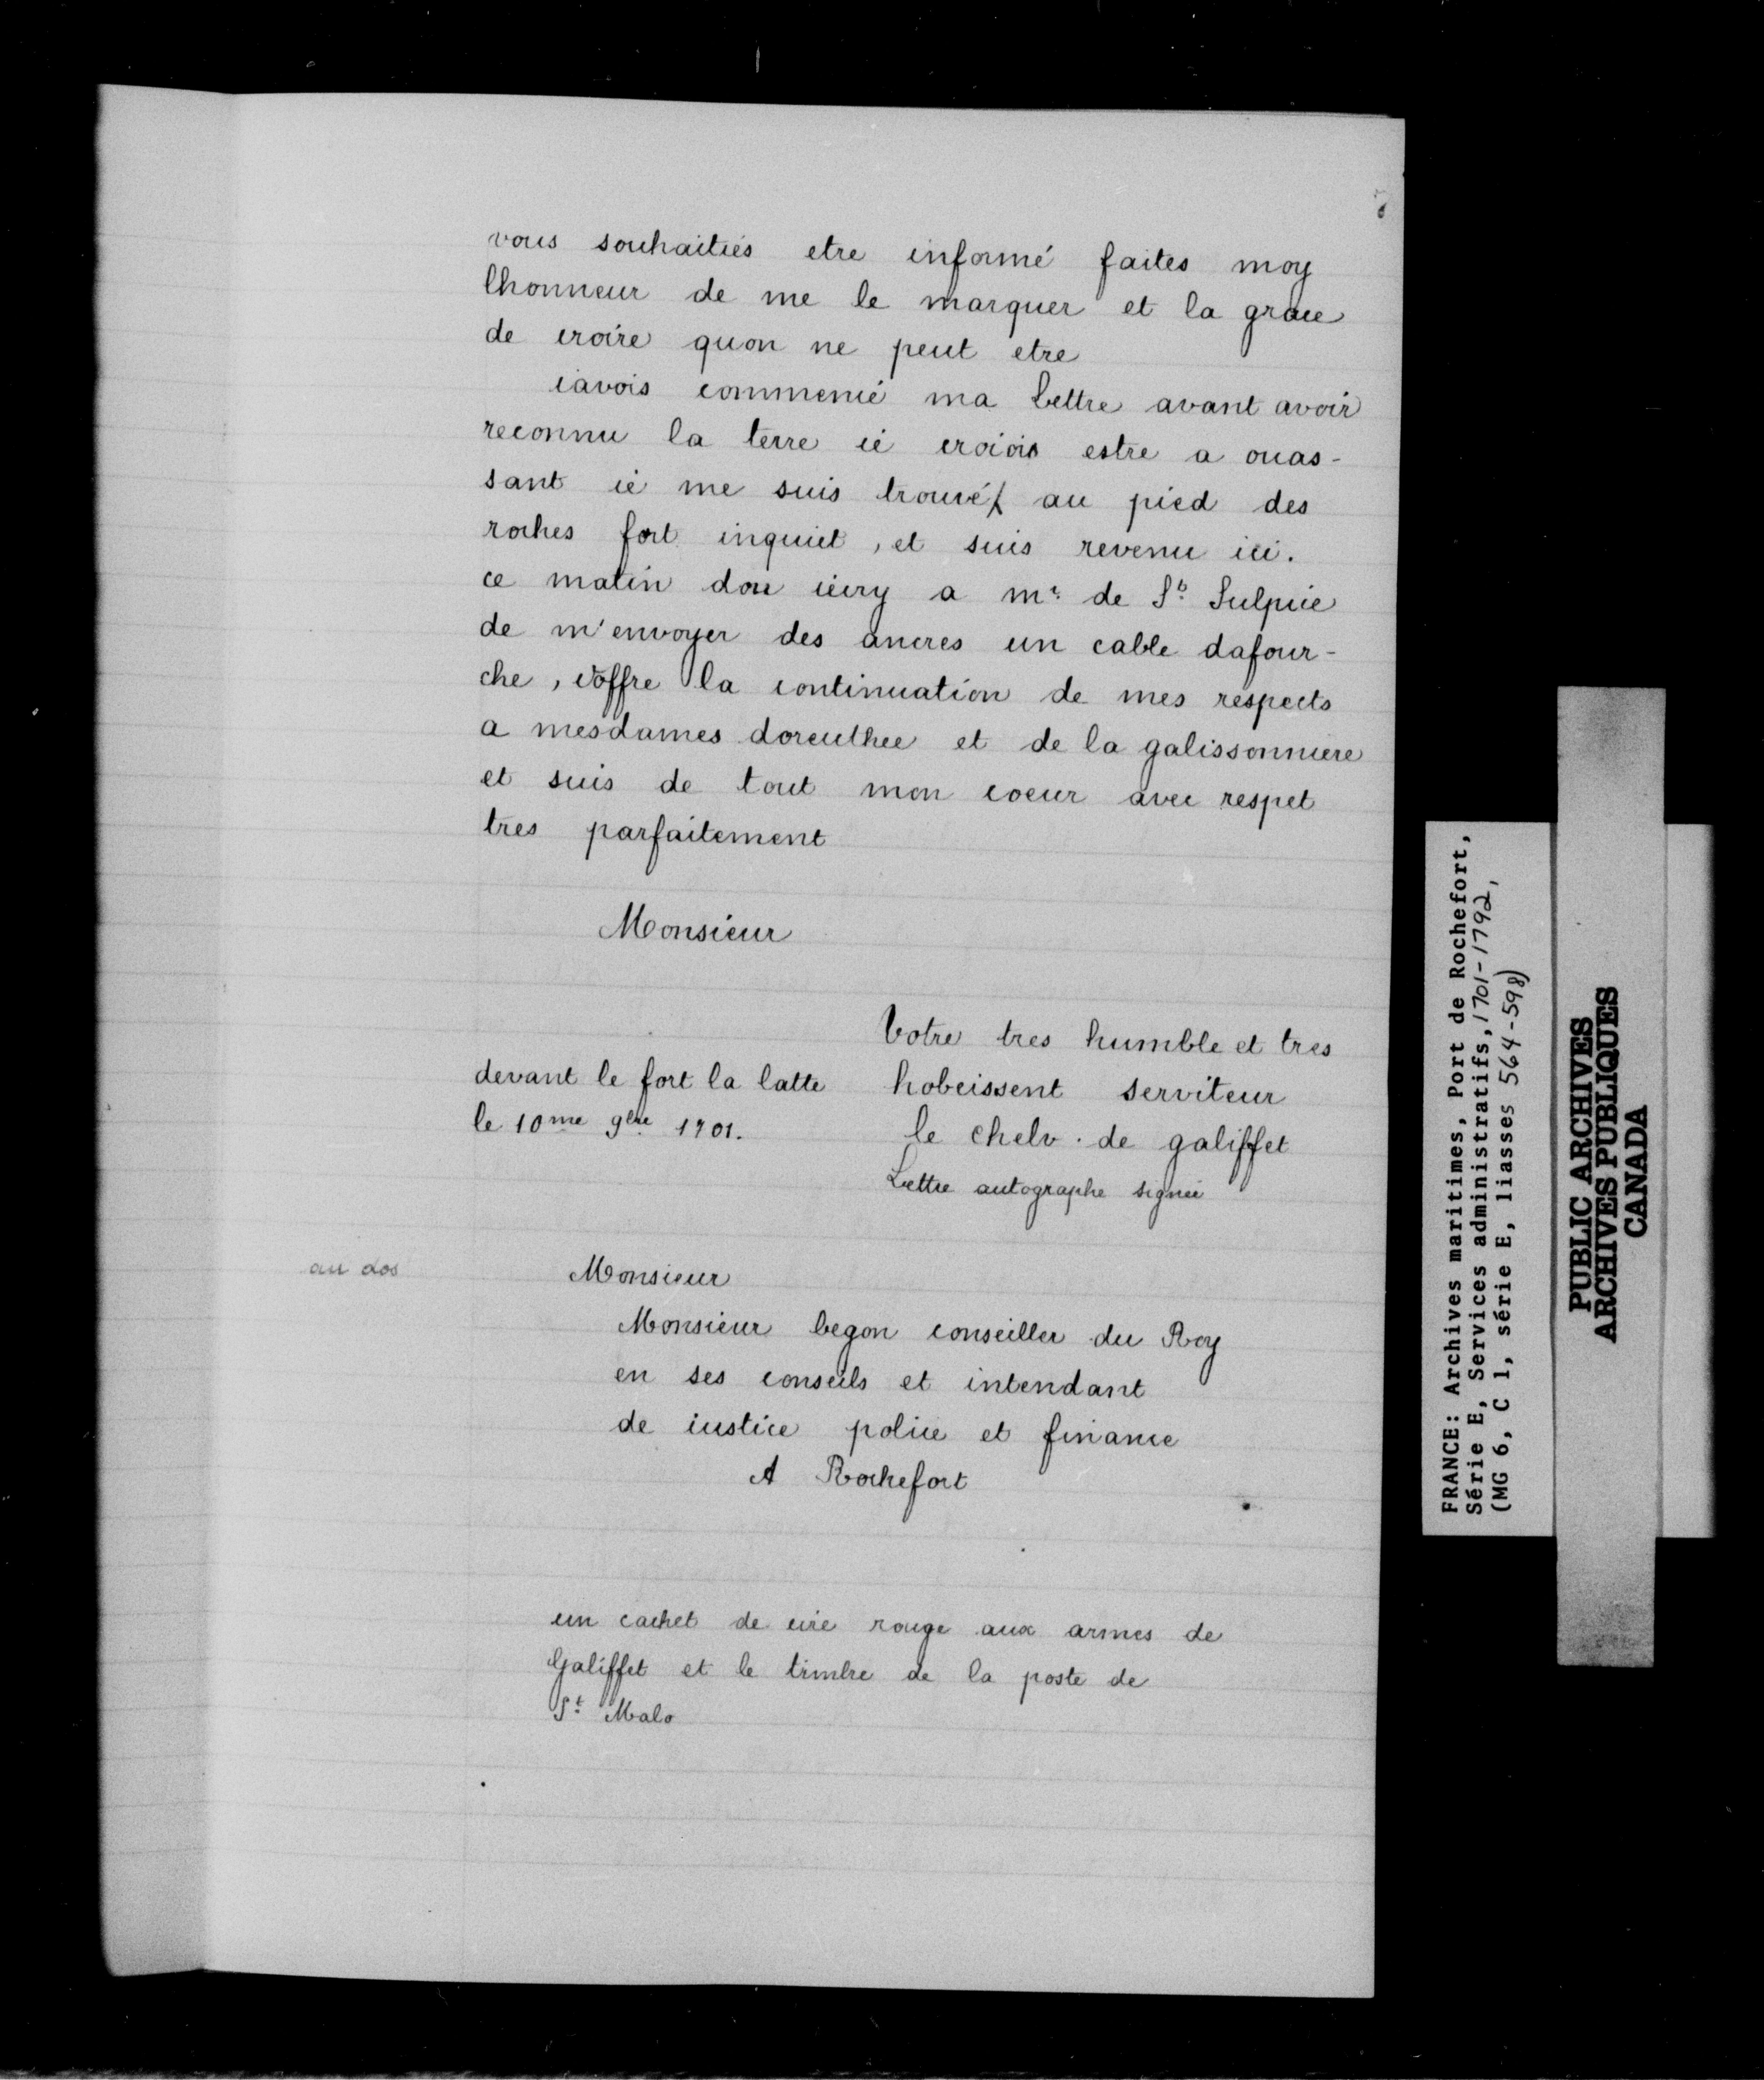 vous souhaitiés etre informé faites moy
lhonneur de me le marquer et la grace
de croire quon ne peut etre
iavois commencé ma Lettre avant avoir
reconnu la terre ié croiois estre a ouas-
sant ié me suis trouvé au pied des
roches fort inquiet, et suis revenu ici.
ce matin dou iécry a mr. de St. Sulpice
de m'envoyer des ancres un cable dafour-
che, ioffre la continuation de mes respects
a mesdames doreuthee et de la galissonniere
et suis de tout mon coeur avec respet
tres parfaitement
Monsieur
Votre tres humble et tres
devant le fort la latte hobeissent serviteur
le 10me 9bre 1701. le chelv. de galiffet
Lettre autographe signée
au dos Monsieur
Monsieur begon conseiller du Roy
en ses conseils et intendant
de iustice police et finance
A Rochefort
un cachet de cire rouge aux armes de
Galiffet et le timbre de la poste de
St. Malo
FRANCE: Archives maritimes, Port de Rochefort,
Série E, Services administratifs, 1701-1792,
(MG 6, C 1, série E, liasses 564-598)
PUBLIC ARCHIVES
ARCHIVES PUBLIQUES
CANADA